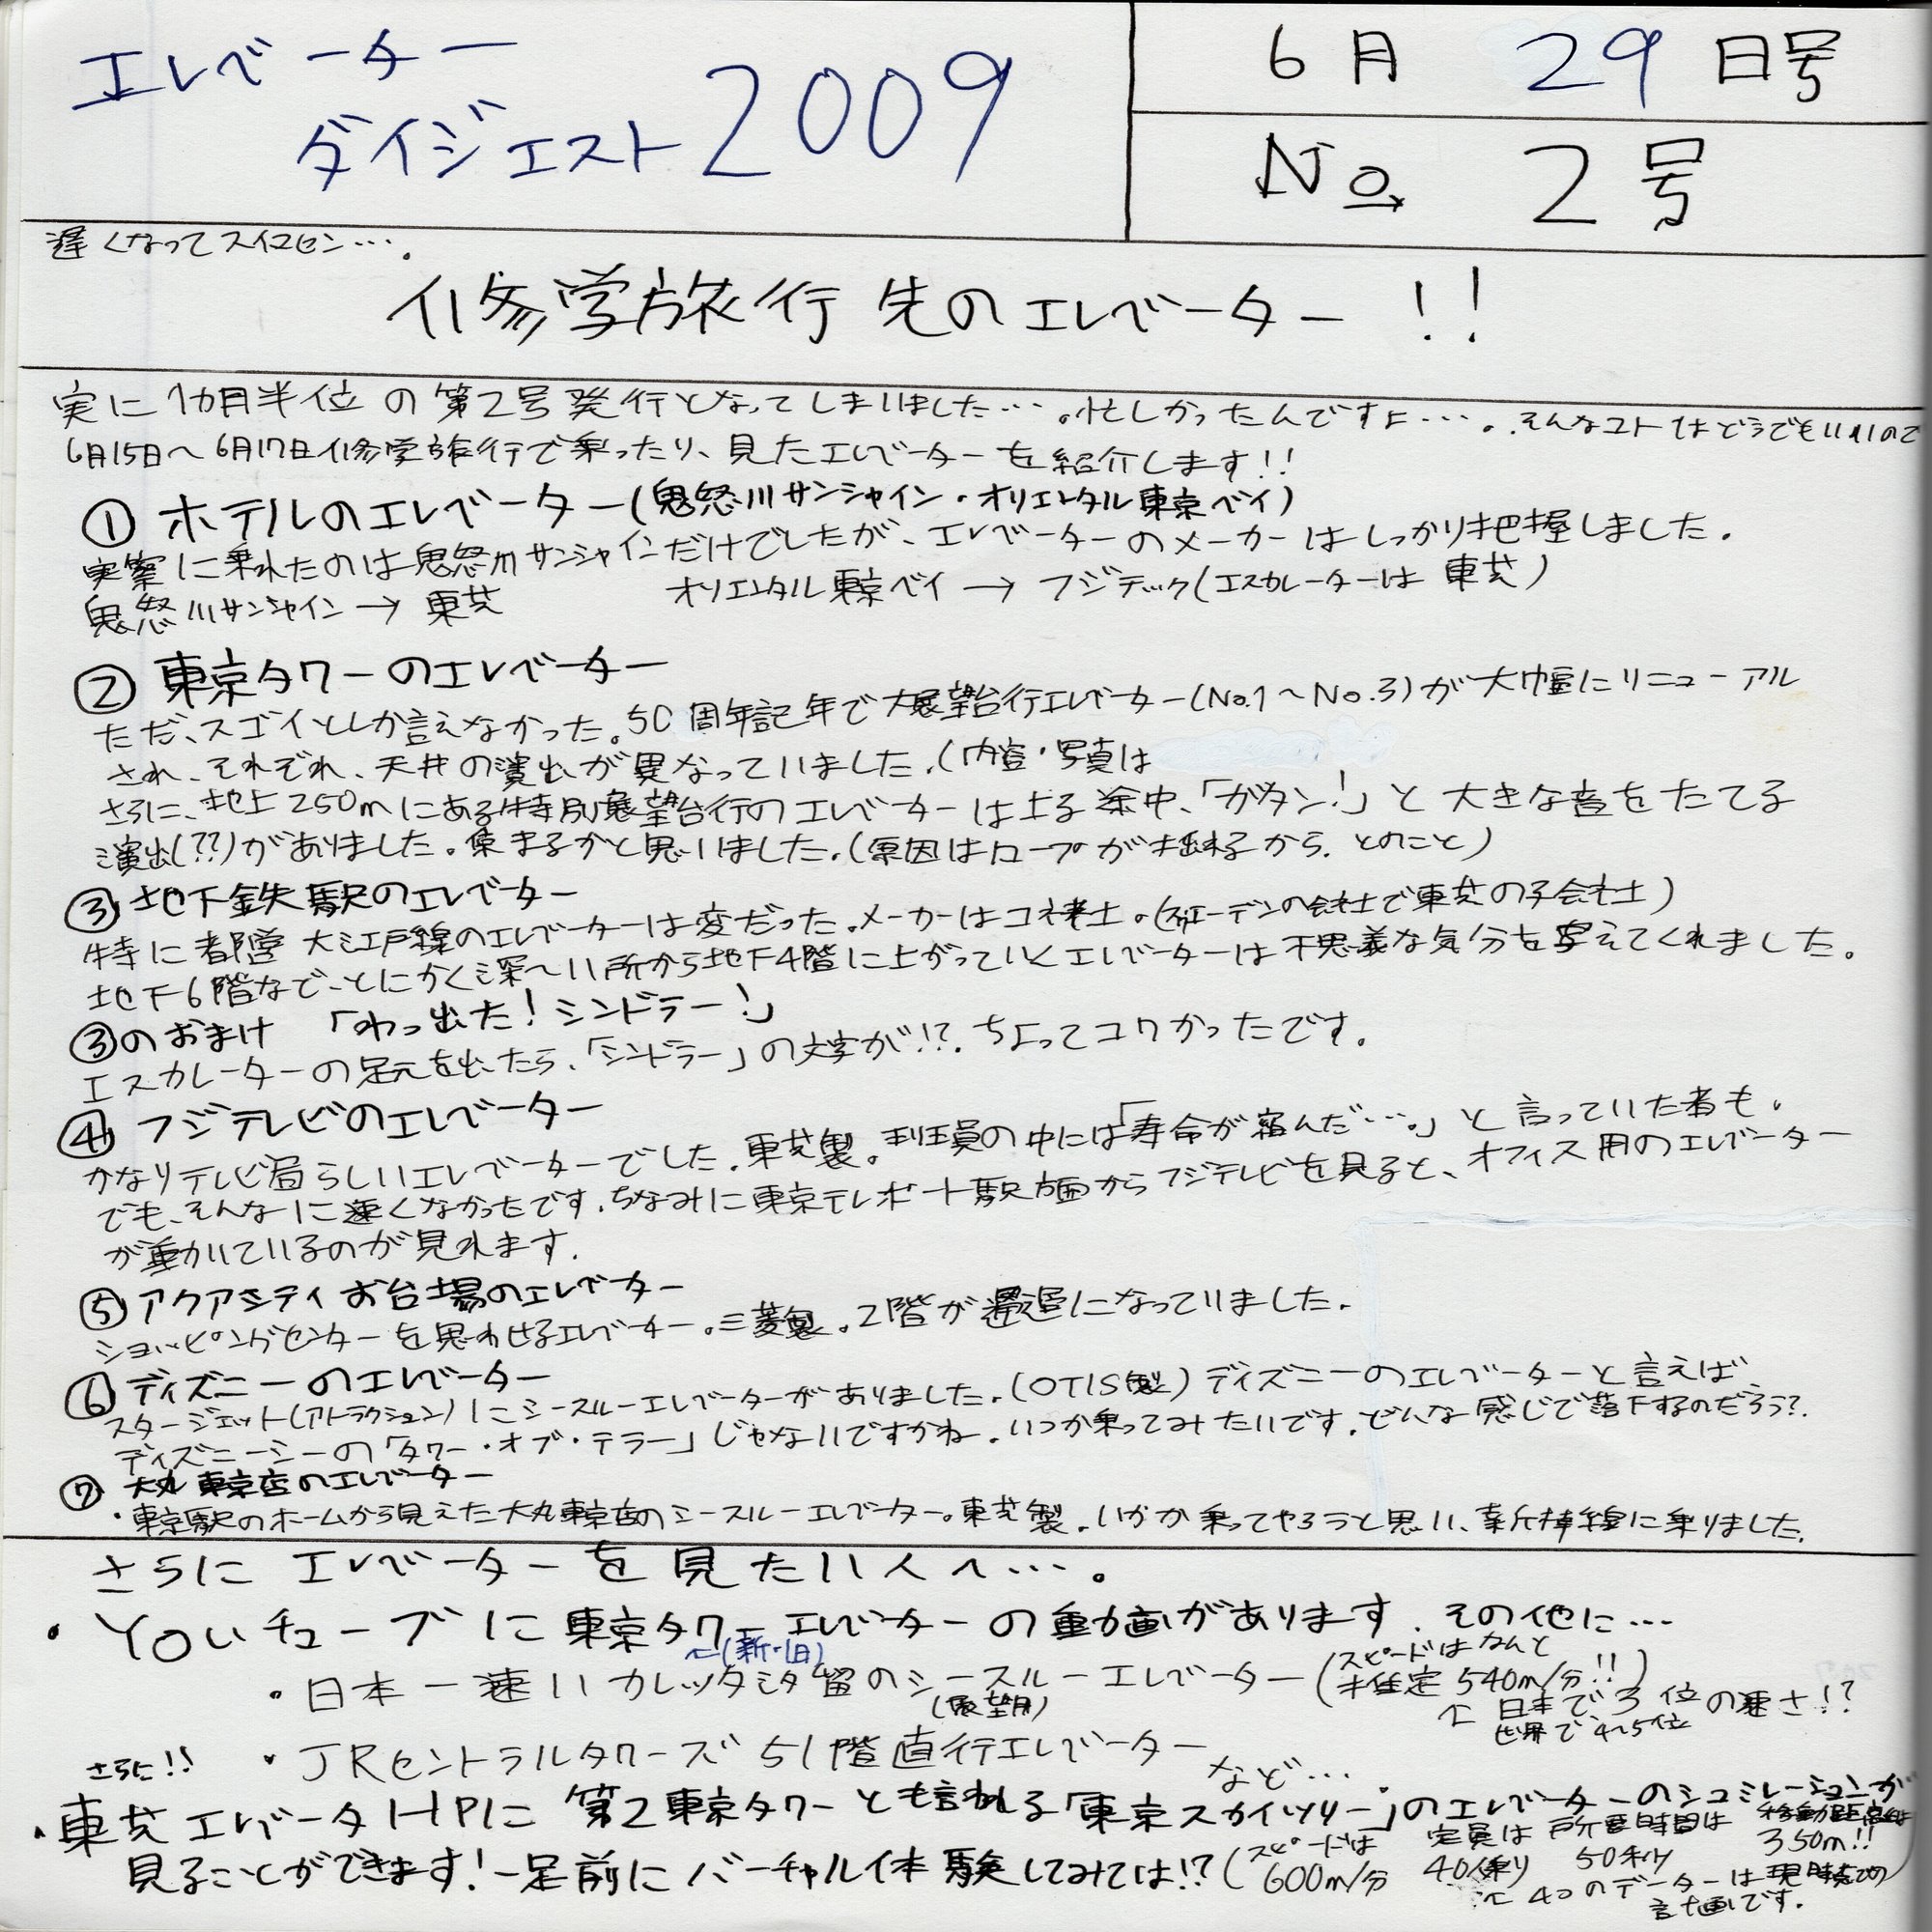 エレベーター
ダイジェスト2009
6月 29 日号
No. 2号
遅くなってスイマセン…。
修学旅行先のエレベーター!!
実に1カ月半位の第2号発行となってしまいました…。忙しかったんですよ…。そんなコトはどうでもいいので
6月15日〜6月17日修学旅行で乗ったり、見たエレベーターを紹介します!!
① ホテルのエレベーター(鬼怒川サンシャイン・オリエンタル東京ベイ)
実際に乗れたのは鬼怒川サンシャインだけでしたが、エレベーターのメーカーはしっかり把握しました。
鬼怒川サンシャイン→東芝 オリエンタル東京ベイ→フジテック(エスカレーターは東芝)
② 東京タワーのエレベーター
ただ、スゴイとしか言えなかった。50周年記年で大展望台行エレベーター(No.1〜No.3)が大幅にリニューアル
され、それぞれ、天井の演出が異なっていました。(内容・写真は
さらに、地上250mにある特別展望台行のエレベーターは上る途中、「ガタン!」と大きな音をたてる
演出(??)がありました。集まるかと思いました。(原因はロープが揺れるから。とのこと)
③ 地下鉄駅のエレベーター
特に都営大江戸線のエレベーターは変だった。メーカーはコネ社。(スウェーデンの会社で東芝の子会社)
地下6階など、とにかく深〜い所から地下4階に上がっていくエレベーターは不思義な気分を与えてくれました。
③のおまけ 「わっ出た!シンドラー!」
エスカレーターの足元を出たら、「シンドラー」の文字が!?。ちょってコワかったです。
④ フジテレビのエレベーター
かなりテレビ局らしいエレベーターでした。東芝製。班員の中には「寿命が縮んだ…。」と言っていた者も。
でも、そんなに速くなかったです。ちなみに東京テレポート駅方面からフジテレビを見ると、オフィス用のエレベーター
が動いているのが見れます。
⑤ アクアシティお台場のエレベーター
ショッピングセンターを思わせるエレベーター。三菱製。2階が通過になっていました。
⑥ ディズニーのエレベーター
スタージェット(アトラクション)にシースルーエレベーターがありました。(OTIS製)ディズニーのエレベーターと言えば、
ディズニーシーの「タワー・オブ・テラー」じゃないですかね。いつか乗ってみたいです。どんな感じで落下するのだろう?。
⑦ 大丸東京店のエレベーター
・東京駅のホームから見えた大丸東京店のシースルーエレベーター。東芝製。いつか乗ってやろうと思い、新幹線に乗りました。
さらにエレベーターを見たい人へ…。
・YOUチューブに東京タワーエレベーターの動画があります。その他に…
←(新・旧)
・日本一速いカレッタ汐留のシースルーエレベーター(スピードはなんと推定540m/分!!)
(展望用)
↑日本で3位の速さ!?
世界で4〜5位
・JRセントラルタワーズ51階直行エレベーターなど…。
さらに!!
・東芝エレベータHPに第2東京タワーとも言われる「東京スカイツリー」のエレベーターのシュミレーションが
見ることができます!一足前にバーチャル体験してみては!?(スピードは600m/分 定員は40人乗り 所要時間は50秒 移動距離は350m!!)
↑40のデーターは現時点での
計画です。